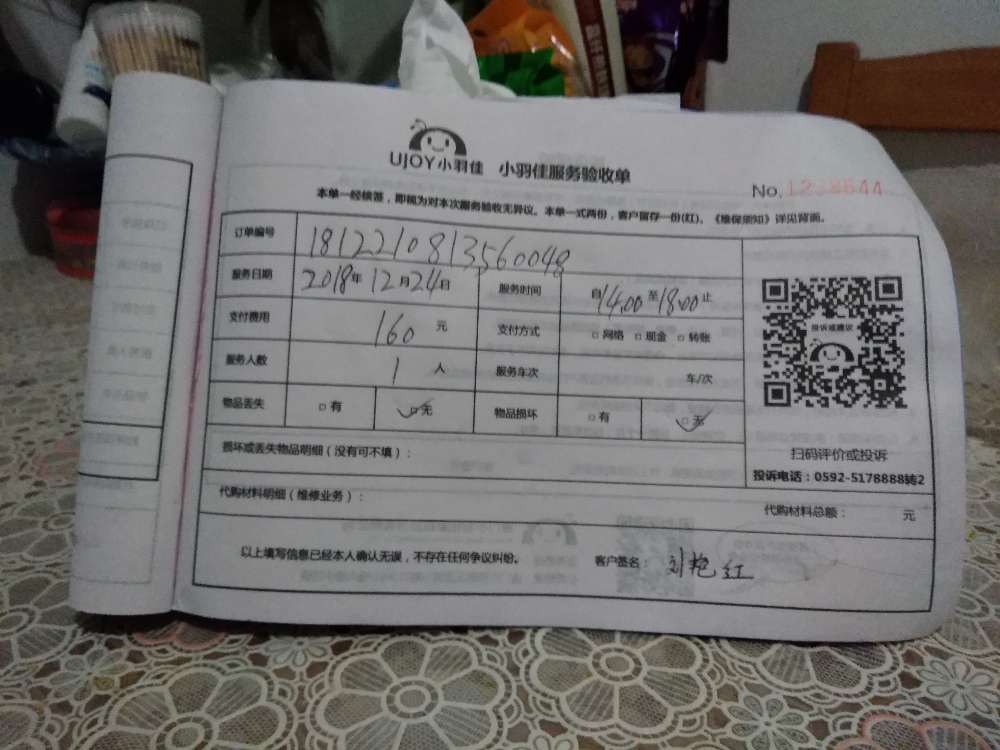 UJOY小羽佳 小羽佳服务验收单
No.1238644
本单一经核签，即视为对本次服务验收无异议。本单一式两份，客户留存一份(红)。《维保须知》详见背面。
订单编号 1812210813560048
服务日期 2018年12月24日 服务时间 自14:00至18:00止
支付费用 160元 支付方式 □网络 □现金 □转账
服务人数 1人 服务车次 车/次
物品丢失 □有 ☑无 物品损坏 □有 ☑无
投诉或建议
扫码评价或投诉
投诉电话：0592-5178888转2
损坏或丢失物品明细（没有可不填）：
代购材料明细（维修业务）： 代购材料总额： 元
以上填写信息已经本人确认无误，不存在任何争议纠纷。 客户签名： 刘艳红